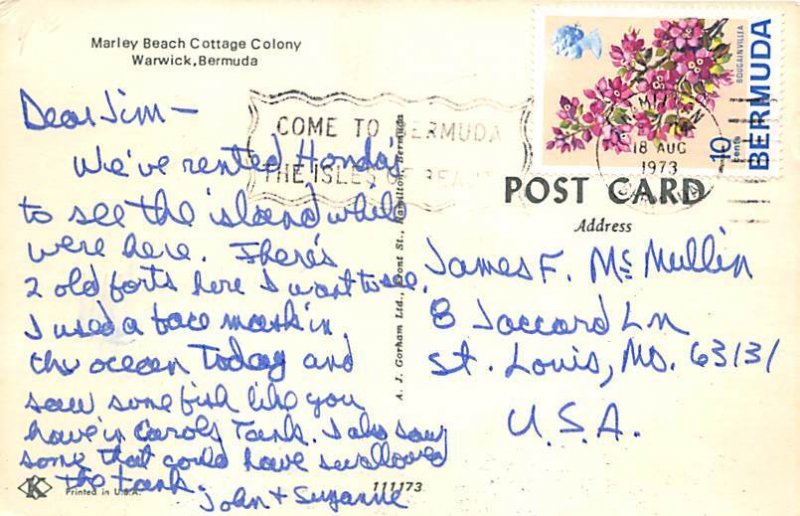 Marley Beach Cottage Colony
Warwick, Bermuda
Dear Jim—
We've rented Honda's
to see the island while
were here. There's
2 old forts here I want to see.
I used a face mask in
the ocean Today and
saw some fish like you
have in Carols Tank. I also saw
some that could have swallowed
the tank.
John + Suzanne
K
Printed in U.S.A.
111173
A. J. Gorham Ltd., Front St., Hamilton, Bermuda
COME TO BERMUDA
THE ISLES OF
HAMILTON
18 AUG
1973
BOUGAINVILLEA
10 cents
BERMUDA
POST CARD
Address
James F. McMullin
8 Jaccard Ln
St. Louis, Mo. 63131
U.S.A.